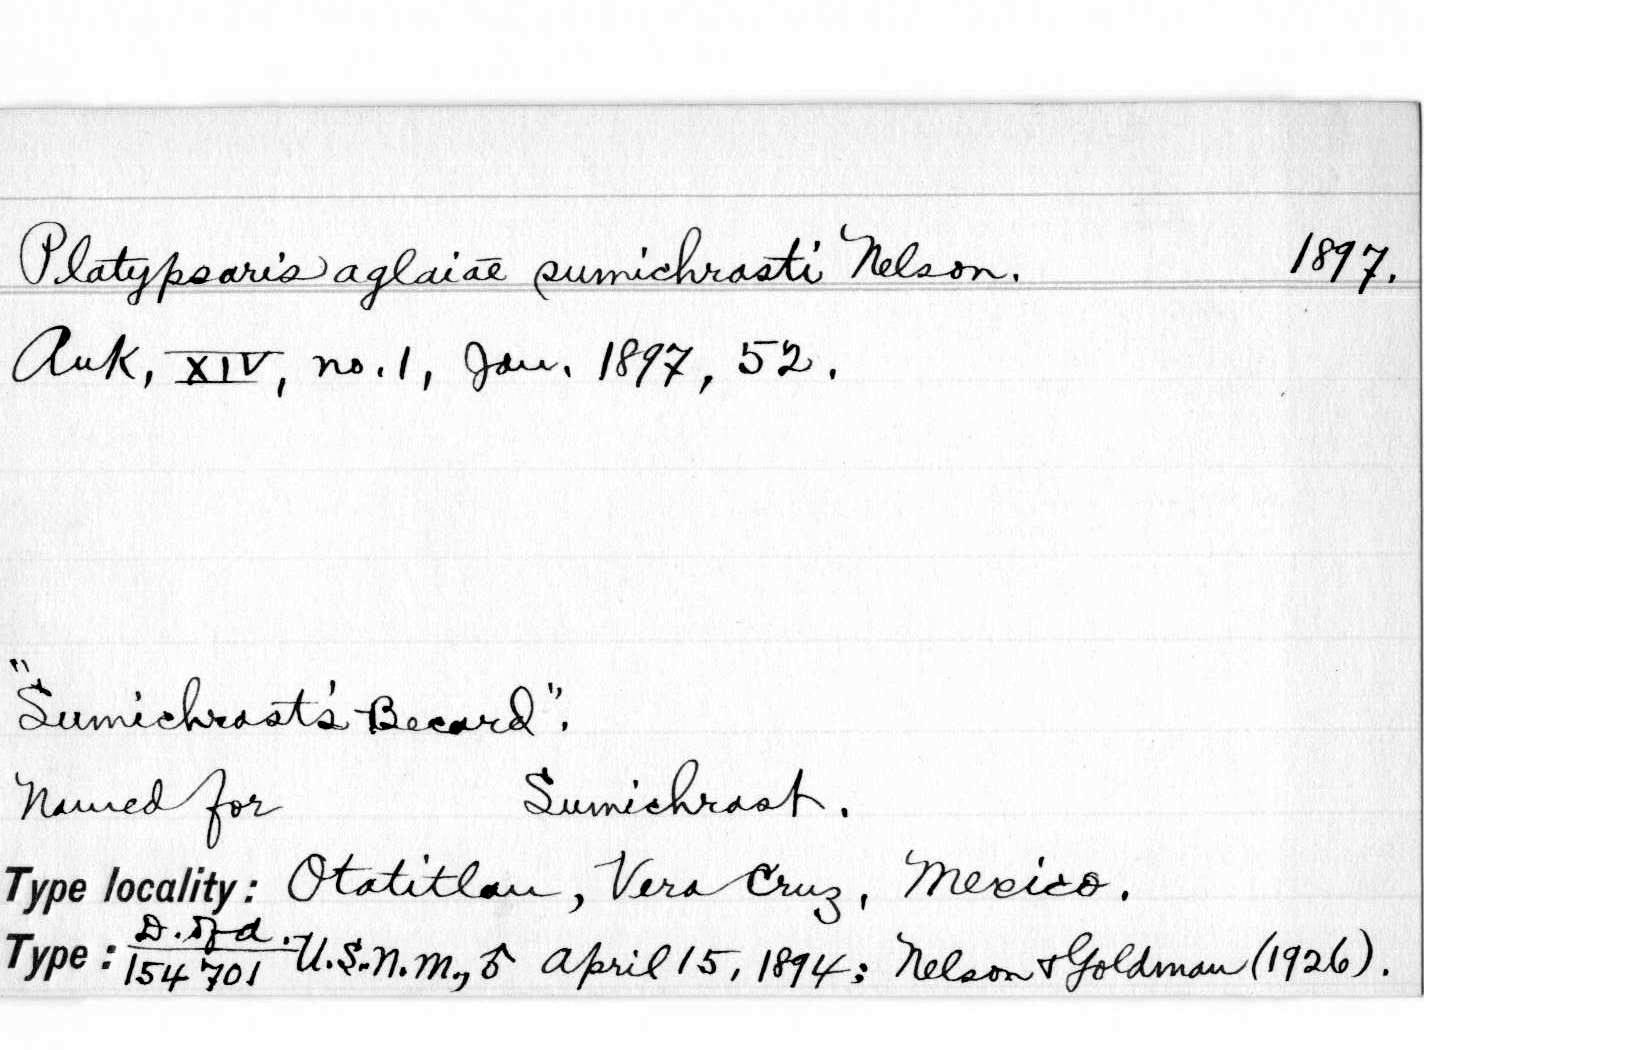 Platypsaris aglaiae sumichrasti Nelson. 1897.
Auk, XIV, no. 1, Jan. 1897, 52.
"Sumichrast's Becard".
Named for Sumichrast.
Type locality: Otatitlan, Vera Cruz, Mexico.
Type: 154701 U.S.N.M., ♂ April 15, 1894; Nelson & Goldman (1926).